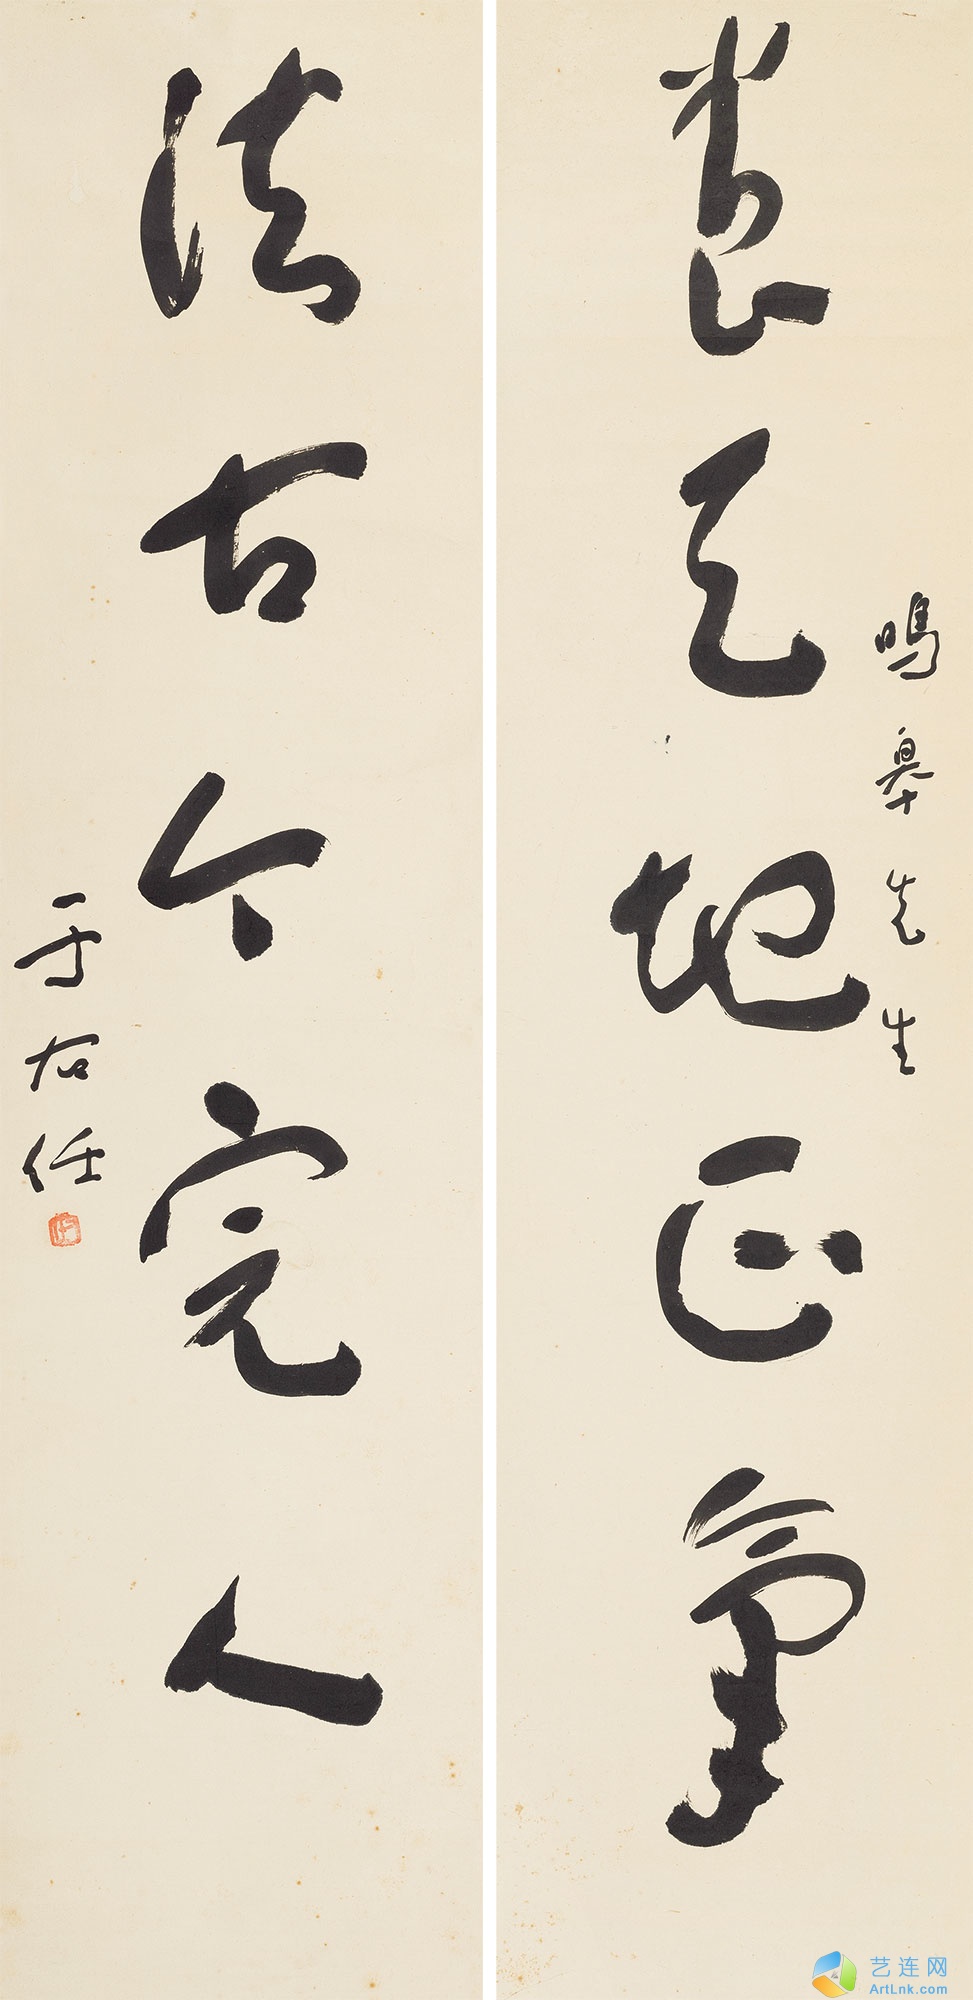 养天地正氣
鳴皋先生
法古今完人
于右任
艺连网
ArtLnk.com